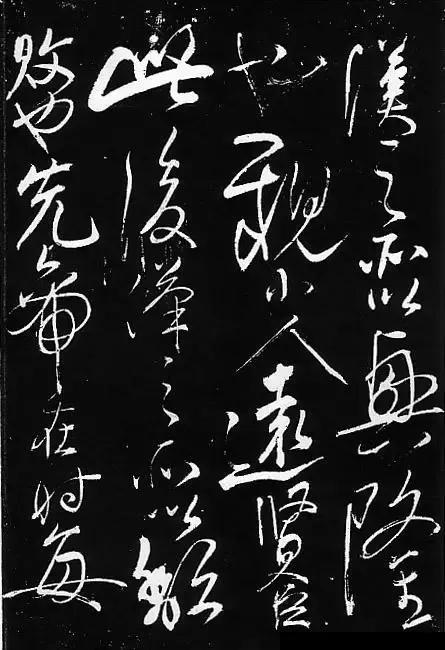 漢之所以興隆
也親小人遠賢臣
此後漢之所以頹
敗也先帝在時每